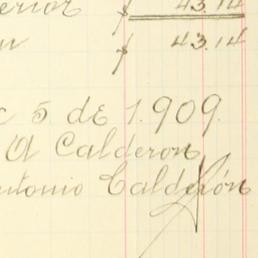 erior $ 43.14
$ 43.14
5 de 1.909.
A Calderon
ntonio Calderón